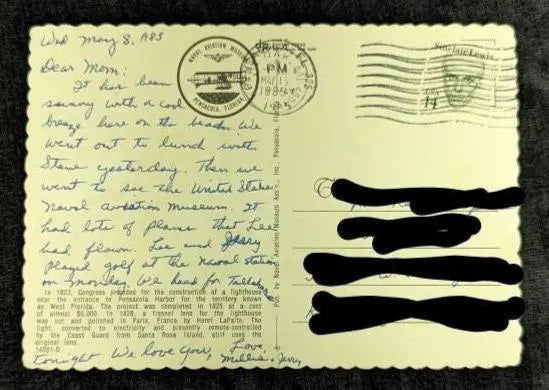 Wed May 8, 1985
Dear Mom:
It has been
sunny with a cool
breeze here on the beach. We
went out to lunch with
Steve yesterday. Then we
went to see the United States
Naval aviation Museum. It
had lots of planes that Lee
had flown. Lee and Jerry
played golf at the Naval Station
on Monday. We head for
In 1823, Congress provided for the construction of a lighthouse
near the entrance to Pensacola Harbor for the territory known
as West Florida. The project was completed in 1825 at a cost
of almost $6,000. In 1828, a fresnel lens for the lighthouse
was cut and polished in Paris, France by Henri LaPaite. The
light, converted to electricity and presently remote-controlled
by the Coast Guard from Santa Rosa Island, still uses the
original lens.
14001-D
tonight We love you, Love
Millie & Jerry
NAVAL AVIATION MUSEUM
PENSACOLA, FLORIDA
PM
1985
Pub. by Naval Aviation Museum Ass'n., Inc., Pensacola,
Sinclair Lewis
USA
14